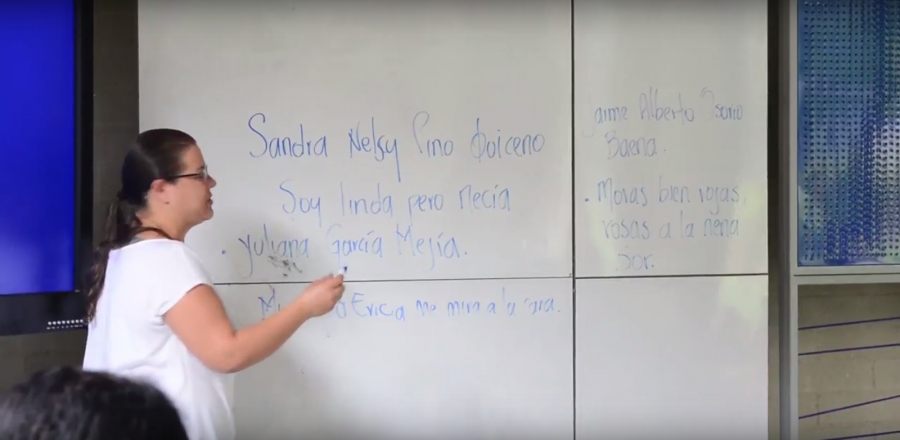 Sandra Nelsy Pino Quiceno
Soy linda pero necia
· Yuliana García Mejía.
Erica me mira a la
Jaime Alberto Osorio
Baena.
· Moras bien rojas,
rosas a la nena